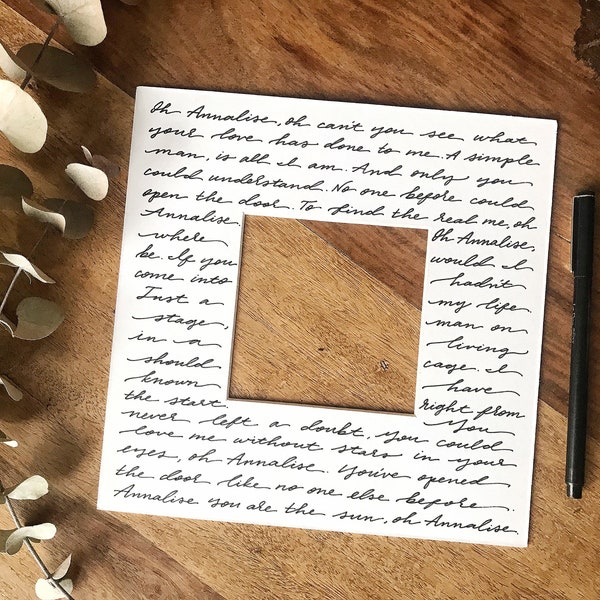 Oh Annalise, oh can't you see what
your love has done to me. A simple
man, is all I am. And only you
could understand. No one before could
open the door. To find the real me, oh
Annalise. Oh Annalise,
where would I
be. If you hadn't
come into my life.
Just a man on
stage, living
in a cage. I
should have
known right from
the start, You
never left a doubt, you could
love me without stars in your
eyes, oh Annalise. You've opened
the door like no one else before.
Annalise you are the sun, oh Annalise